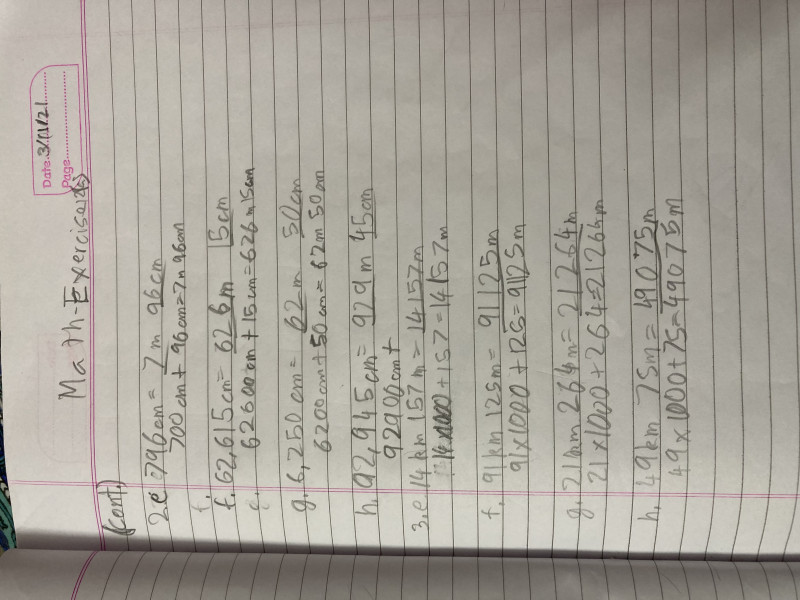 Date. 3/11/21
Page.
Math-Exercise
(cont.)
2.e 796cm = 7m 96cm
700cm + 96cm = 7m 96cm
f.
f. 62,615cm = 626m 15cm
62600cm + 15cm = 626m 15cm
g. 6,250cm = 62m 50cm
6200cm + 50cm = 62m 50cm
h. 92,945cm = 929m 45cm
92900cm +
3.e. 14km 157m = 14157m
14x1000 + 157 = 14157m
f. 91km 125m = 91125m
91x1000 + 125 = 91125m
g. 21km 264m = 21264m
21x1000 + 264 = 21264m
h. 49km 75m = 49075m
49x1000 + 75 = 49075m